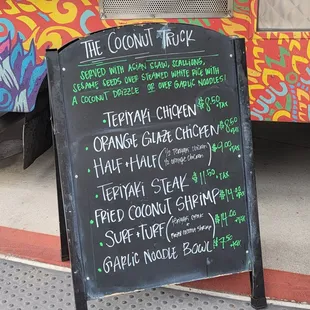 THE COCONUT TRUCK
SERVED WITH ASIAN SLAW, SCALLIONS,
SESAME SEEDS OVER STEAMED WHITE RICE WITH
A COCONUT DRIZZLE OR OVER GARLIC NOODLES!
· TERIYAKI CHICKEN $8.50 +TAX
· ORANGE GLAZE CHICKEN $8.50 +TAX
· HALF + HALF (½ TERIYAKI CHICKEN ½ ORANGE CHICKEN) $9.00 +TAX
· TERIYAKI STEAK $11.50 +TAX
· FRIED COCONUT SHRIMP $14.00 +TAX
· SURF + TURF (TERIYAKI + FRIED COCONUT SHRIMP) $14.00 +TAX
· GARLIC NOODLE BOWL $7.50 +TAX